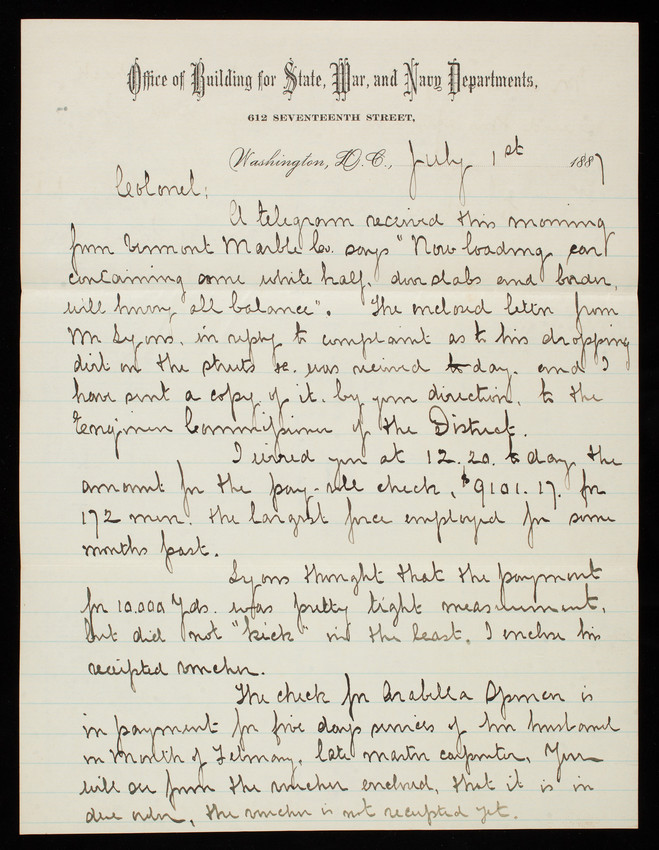 Office of Building for State, War, and Navy Departments,
612 SEVENTEENTH STREET,
Washington, D.C., July 1st 1887
Colonel;
A telegram received this morning
from Vermont Marble Co. says "Now loading car
containing some white half, door slabs and border,
will hurry all balance". The enclosed letter from
Mr Lyons, in reply to complaint as to his dropping
dirt on the streets &c. was received to day. and I
have sent a copy of it. by your direction, to the
Engineer Commissioner of the District.
I wired you at 12.20. to day the
amount for the pay-roll check, $9101.17. for
172 men. the largest force employed for some
months past.
Lyons thought that the payment
for 10.000 Yds. was pretty tight measurement,
but did not "kick" in the least. I enclose his
receipted voucher.
The check for Arabella is
in payment for five days services of her husband
in Month of February, late master carpenter, You
will see from the voucher enclosed, that it is in
due order, the voucher is not receipted yet.